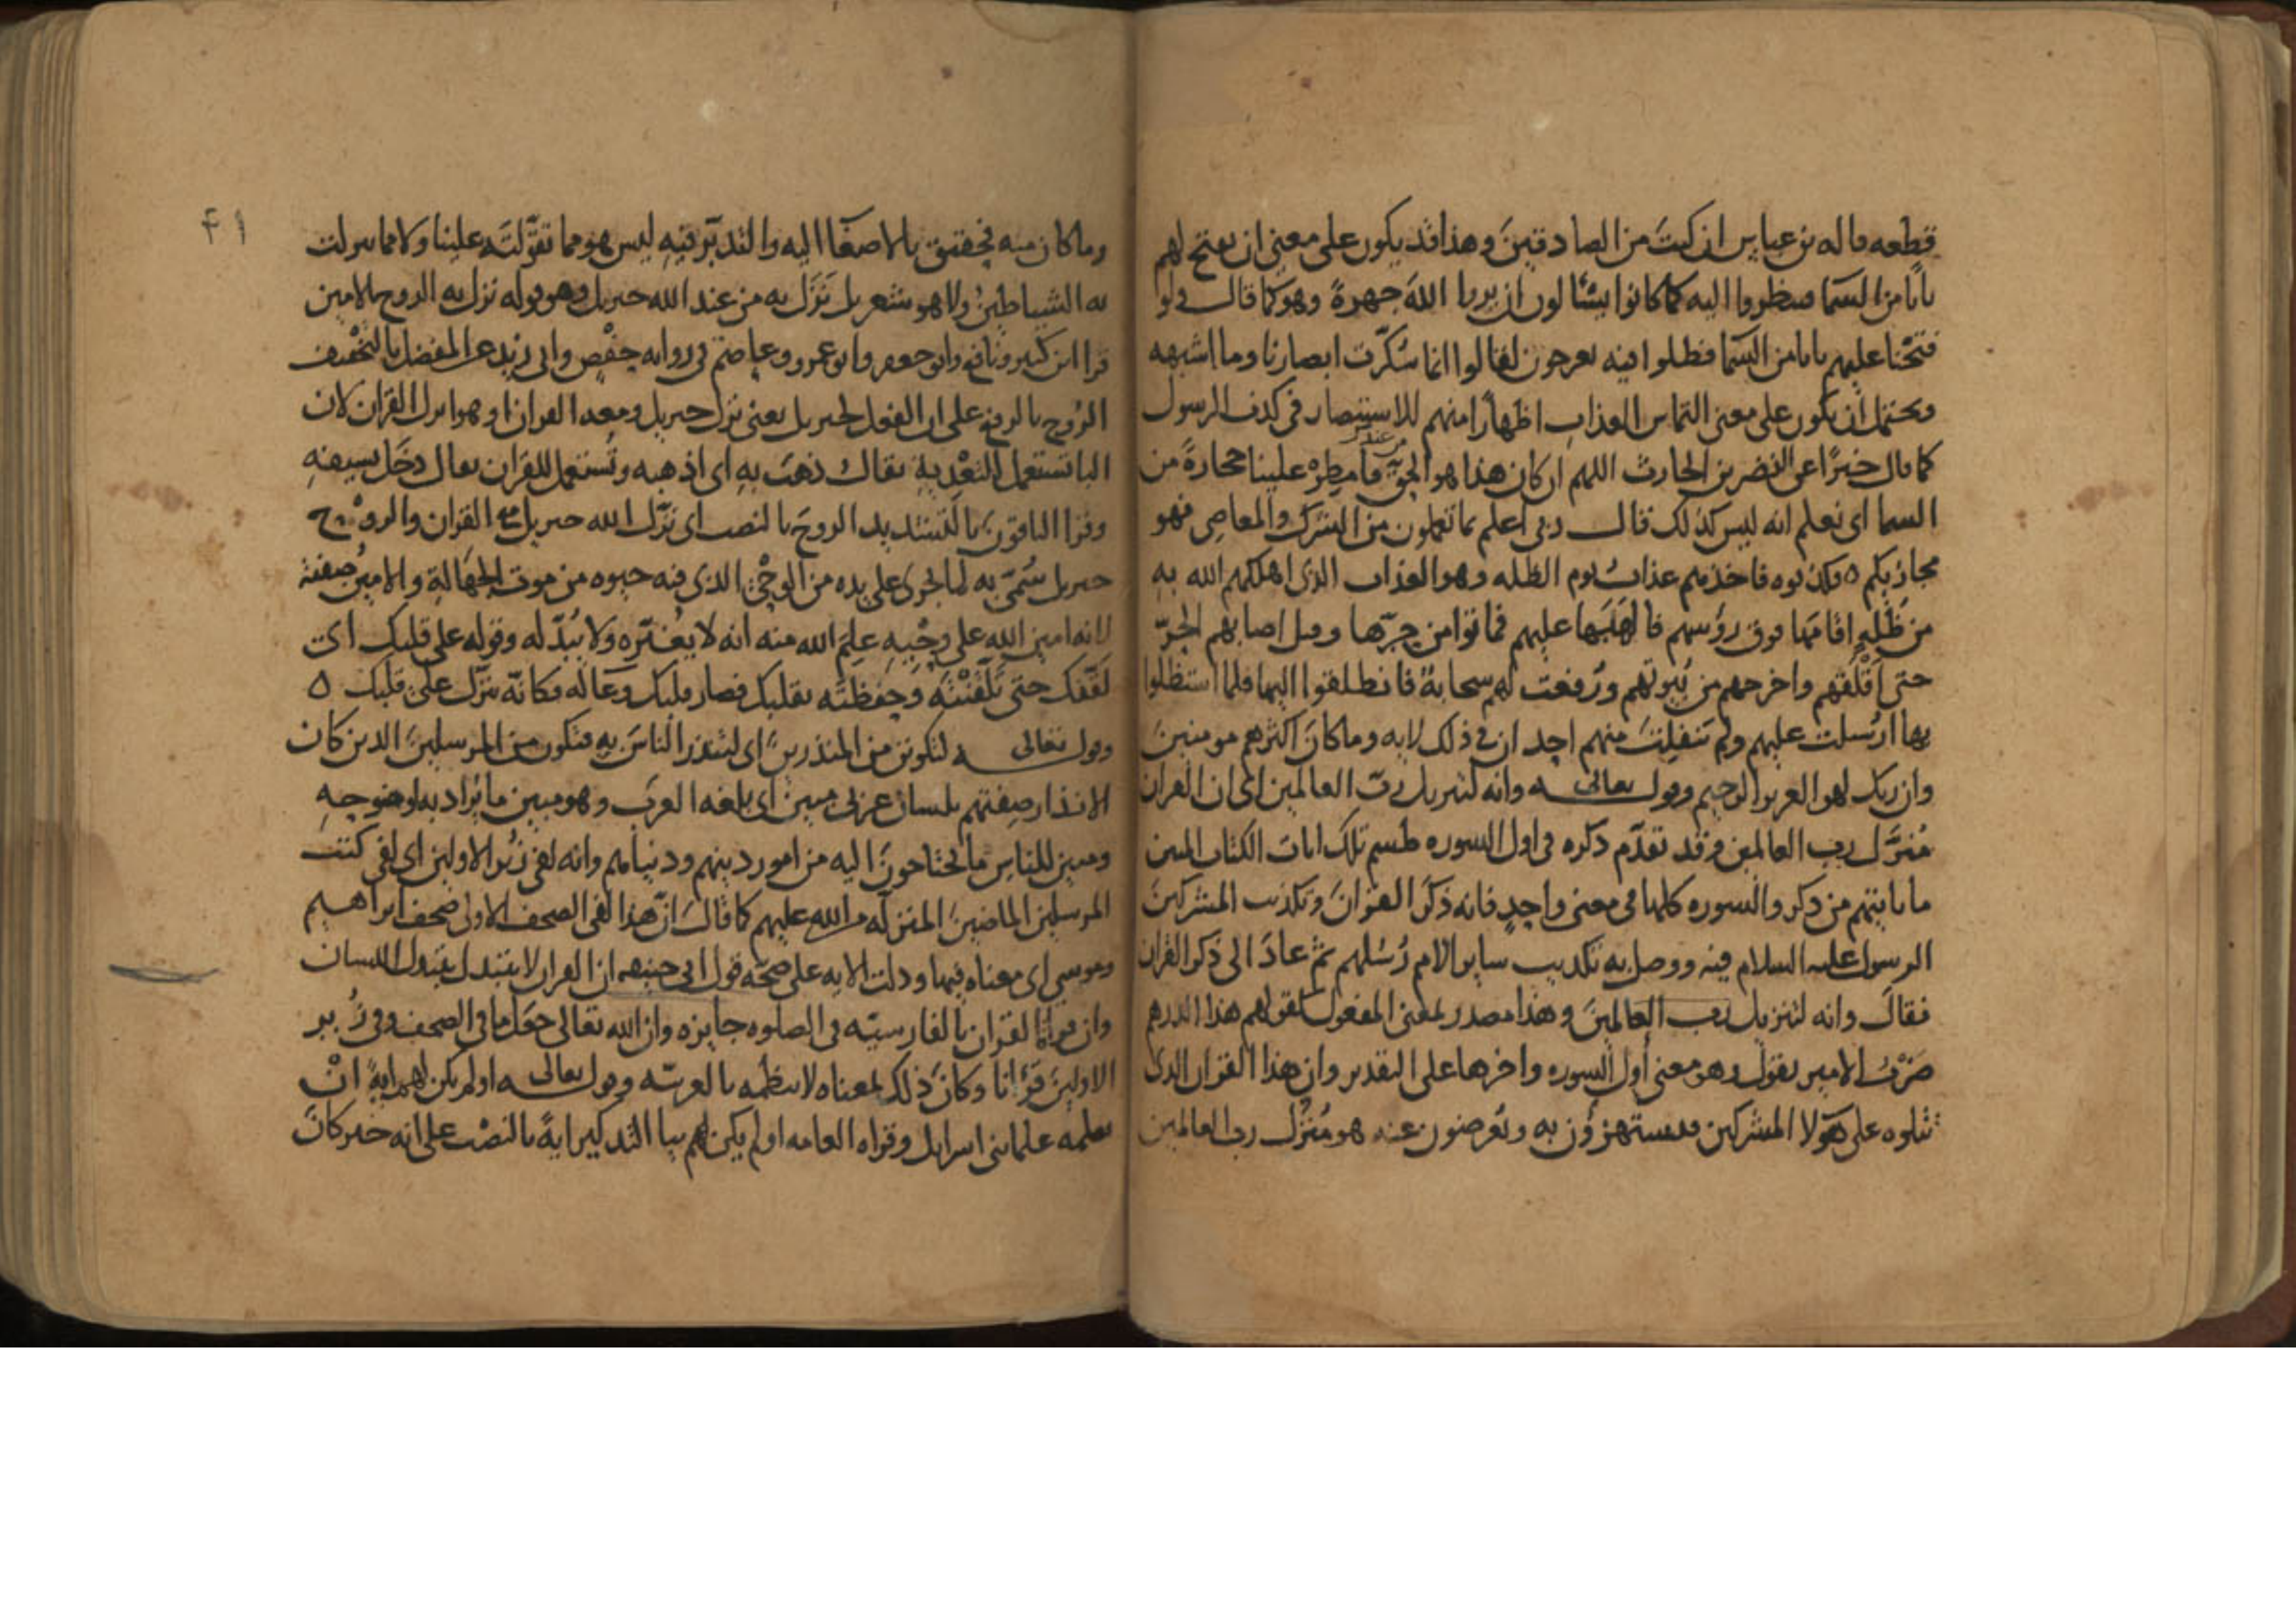 قطعه قاله بن عباس ان كنت من الصادقين وهذا قد يكون على معنى ان يفتح لهم
بابا من السما فينظروا اليه كما كانوا يسألون ان يروا الله جهرة وهو كما قال ولو
فتحنا عليهم بابا من السما فظلوا فيه يعرجون لقالوا انما سكرت ابصارنا وما اشبهه
ويحتمل ان يكون على معنى التماس العذاب اظهارا منهم للاستبصار في كذب الرسول
كما قال خبرا عن النضر بن الحارث اللهم ان كان هذا هو الحق من عندك فامطر علينا حجارة من
السما اى نعلم انه ليس كذلك قال ربي اعلم بما تعملون من الشرك والمعاصي فهو
مجازيكم ه فكذبوه فاخذهم عذاب يوم الظله وهو العذاب الذى اهلكهم الله به
من ظلة اقامها فوق رؤسهم فالهبها عليهم فماتوا من حرها وقيل اصابهم الحر
حتى اقلقهم واخرجهم من بيوتهم ورفعت لهم سحابة فانطلقوا اليها فلما استظلوا
بها ارسلت عليهم ولم تنفلت منهم احد ان في ذلك لايه وما كان اكثرهم مومنين
وان ربك لهو العزيز الرحيم وقول تعالى ه وانه لتنزيل رب العالمين اى ان القران
منزل رب العالمين وقد تقدم ذكره فى اول السوره طسم تلك ايات الكتاب المبين
ما ياتيهم من ذكر والسوره كلها فى معنى واحد فانه ذكر القران وتكذيب المشركين
الرسول عليه السلام فيه ووصل به تكذيب ساير الامم رسلهم ثم عاد الى ذكر القران
فقال وانه لتنزيل رب العالمين وهذا مصدر بمعنى المفعول كقولهم هذا الدرهم
ضرب الامير يقول وهو معنى اول السوره واخرها على التقدير وان هذا القران الذى
تتلوه على هولا المشركين فيستهزؤن به ويعرضون عنه هو منزل رب العالمين
٤١
وما كان منه فحقيق بالاصغا اليه والتدبر فيه ليس هو مما تقولته علينا ولا مما تنزلت
به الشياطين ولا هو بشعر بل نزل به من عند الله جبريل وهو قوله نزل به الروح الامين
قرا ابن كثير ونافع وابو جعفر وابو عمرو وعاصم فى روايه حفص وابى زيد عن المفضل بالتخفيف
الروح بالرفع على ان الفعل لجبريل يعنى نزل جبريل ومعه القران او هو انزل القران لان
البا تستعمل للتعدية يقال ذهب به اى اذهبه وتستعمل للقران يقال دخل بسيفه
وقرا الباقون بالتشديد الروح بالنصب اى نزل الله جبريل مع القران والروح
جبريل سمى به لما جرى على يده من الوحي الذى فيه حيوه من موت الجهالة والامين صفته
لانه امين الله على وحيه علم الله منه انه لا يغيره ولا يبدله وقوله على قلبك اى
لقنك حتى تلقنته وحفظته بقلبك فصار قلبك وعا له فكانه نزل على قلبك ه
وقول تعالى ه لتكونن من المنذرين اى لتنذر الناس به فتكون من المرسلين الذين كان
الانذار صفتهم بلسان عربى مبين اى بلغه العرب وهو مبين ما يراد به لوضوحه
ومبين للناس ما يحتاجون اليه من امور دينهم ودنياهم وانه لفى زبر الاولين اى لفى كتب
المرسلين الماضين المنزله من الله عليهم كما قال ان هذا لفى الصحف الاولى صحف ابراهيم
وموسى اى معناه فيها ودلت الايه على صحه قول ابى حنيفه ان القران لا يتبدل بتبدل اللسان
وان قراة القران بالفارسيه فى الصلوه جايزه وان الله تعالى جعل ما فى الصحف وفى زبر
الاولين قرانا وكان ذلك بمعناه لا بنظمه بالعربيه وقول تعالى ه اولم يكن لهم اية ان
يعلمه علما بنى اسرايل وقراه العامه اولم يكن لهم بيا التذكير اية بالنصب على انه خبر كان